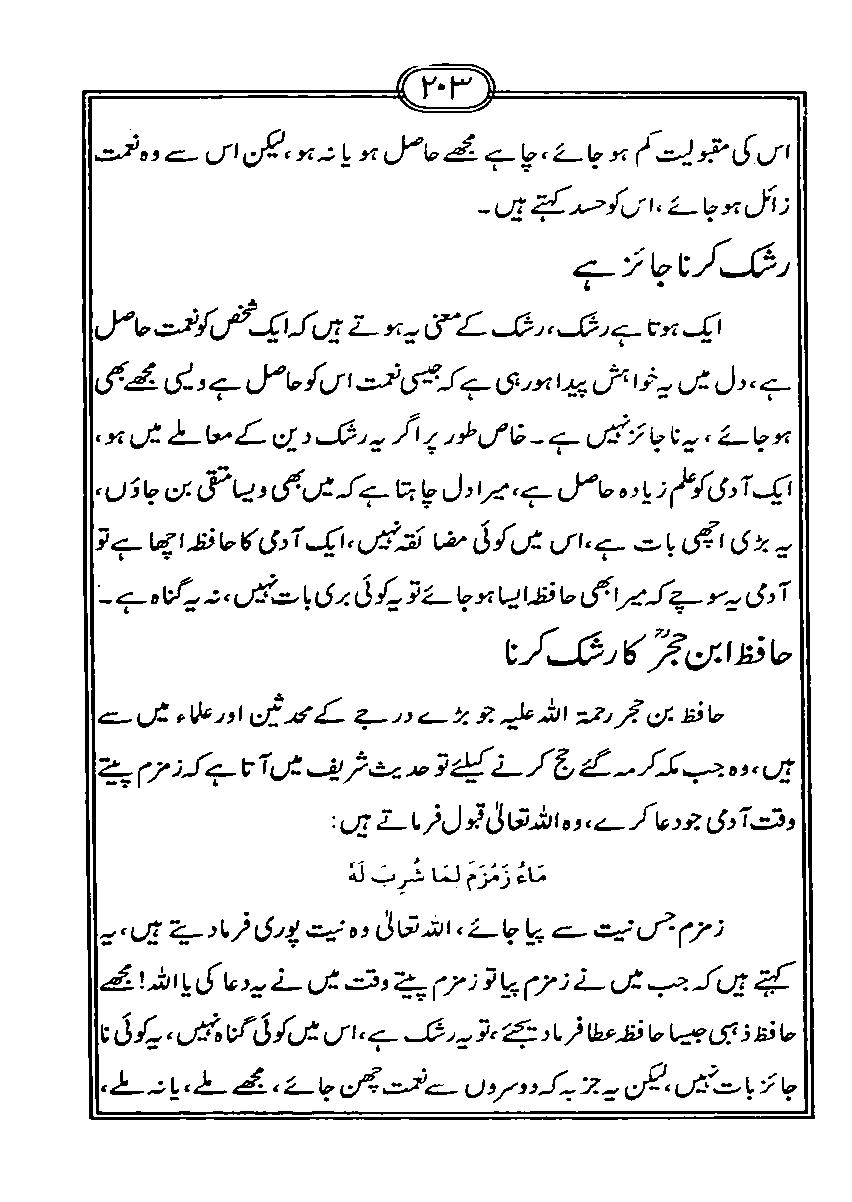 ۲۰۳
اس کی مقبولیت کم ہو جائے، چاہے مجھے حاصل ہو یا نہ ہو، لیکن اس سے وہ نعمت
زائل ہو جائے، اس کو حسد کہتے ہیں۔
رشک کرنا جائز ہے
ایک ہوتا ہے رشک، رشک کے معنی یہ ہوتے ہیں کہ ایک شخص کو نعمت حاصل
ہے، دل میں یہ خواہش پیدا ہو رہی ہے کہ جیسی نعمت اس کو حاصل ہے ویسی مجھے بھی
ہو جائے، یہ ناجائز نہیں ہے۔ خاص طور پر اگر یہ رشک دین کے معاملے میں ہو،
ایک آدمی کو علم زیادہ حاصل ہے، میرا دل چاہتا ہے کہ میں بھی ویسا متقی بن جاؤں،
یہ بڑی اچھی بات ہے، اس میں کوئی مضائقہ نہیں، ایک آدمی کا حافظہ اچھا ہے تو
آدمی یہ سوچے کہ میرا بھی حافظہ ایسا ہو جائے تو یہ کوئی بری بات نہیں، نہ یہ گناہ ہے۔
حافظ ابن حجرؒ کا رشک کرنا
حافظ بن حجر رحمۃ اللہ علیہ جو بڑے درجے کے محدثین اور علماء میں سے
ہیں، وہ جب مکہ مکرمہ گئے حج کرنے کیلئے تو حدیث شریف میں آتا ہے کہ زمزم پیتے
وقت آدمی جو دعا کرے، وہ اللہ تعالیٰ قبول فرماتے ہیں:
مَاءُ زَمْزَمَ لِمَا شُرِبَ لَهٗ
زمزم جس نیت سے پیا جائے، اللہ تعالیٰ وہ نیت پوری فرما دیتے ہیں، یہ
کہتے ہیں کہ جب میں نے زمزم پیا تو زمزم پیتے وقت میں نے یہ دعا کی یا اللہ! مجھے
حافظ ذہبی جیسا حافظہ عطا فرما دیجئے، تو یہ رشک ہے، اس میں کوئی گناہ نہیں، یہ کوئی نا
جائز بات نہیں، لیکن یہ جذبہ کہ دوسروں سے نعمت چھن جائے، مجھے ملے، یا نہ ملے،